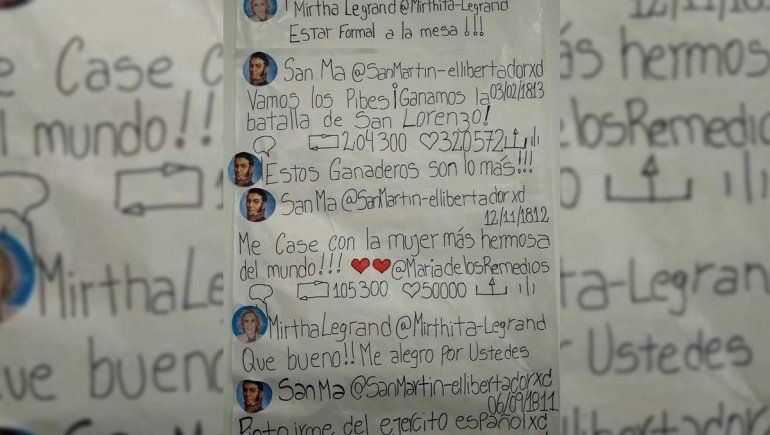 Mirtha Legrand @Mirthita-Legrand
Estar Formal a la mesa !!!
San Ma @SanMartin-ellibertadorxd
03/02/1813
Vamos los Pibes¡Ganamos la
batalla de San Lorenzo!
204300 320572
Estos Ganaderos son lo más!!!
San Ma @SanMartin-ellibertadorxd
12/11/1812
Me Case con la mujer más hermosa
del mundo!!! @MariadelosRemedios
105300 50000
MirthaLegrand @Mirthita-Legrand
Que bueno!! Me alegro por Ustedes
San Ma @SanMartin-ellibertadorxd
06/09/1811
irme del ejercito españolxd